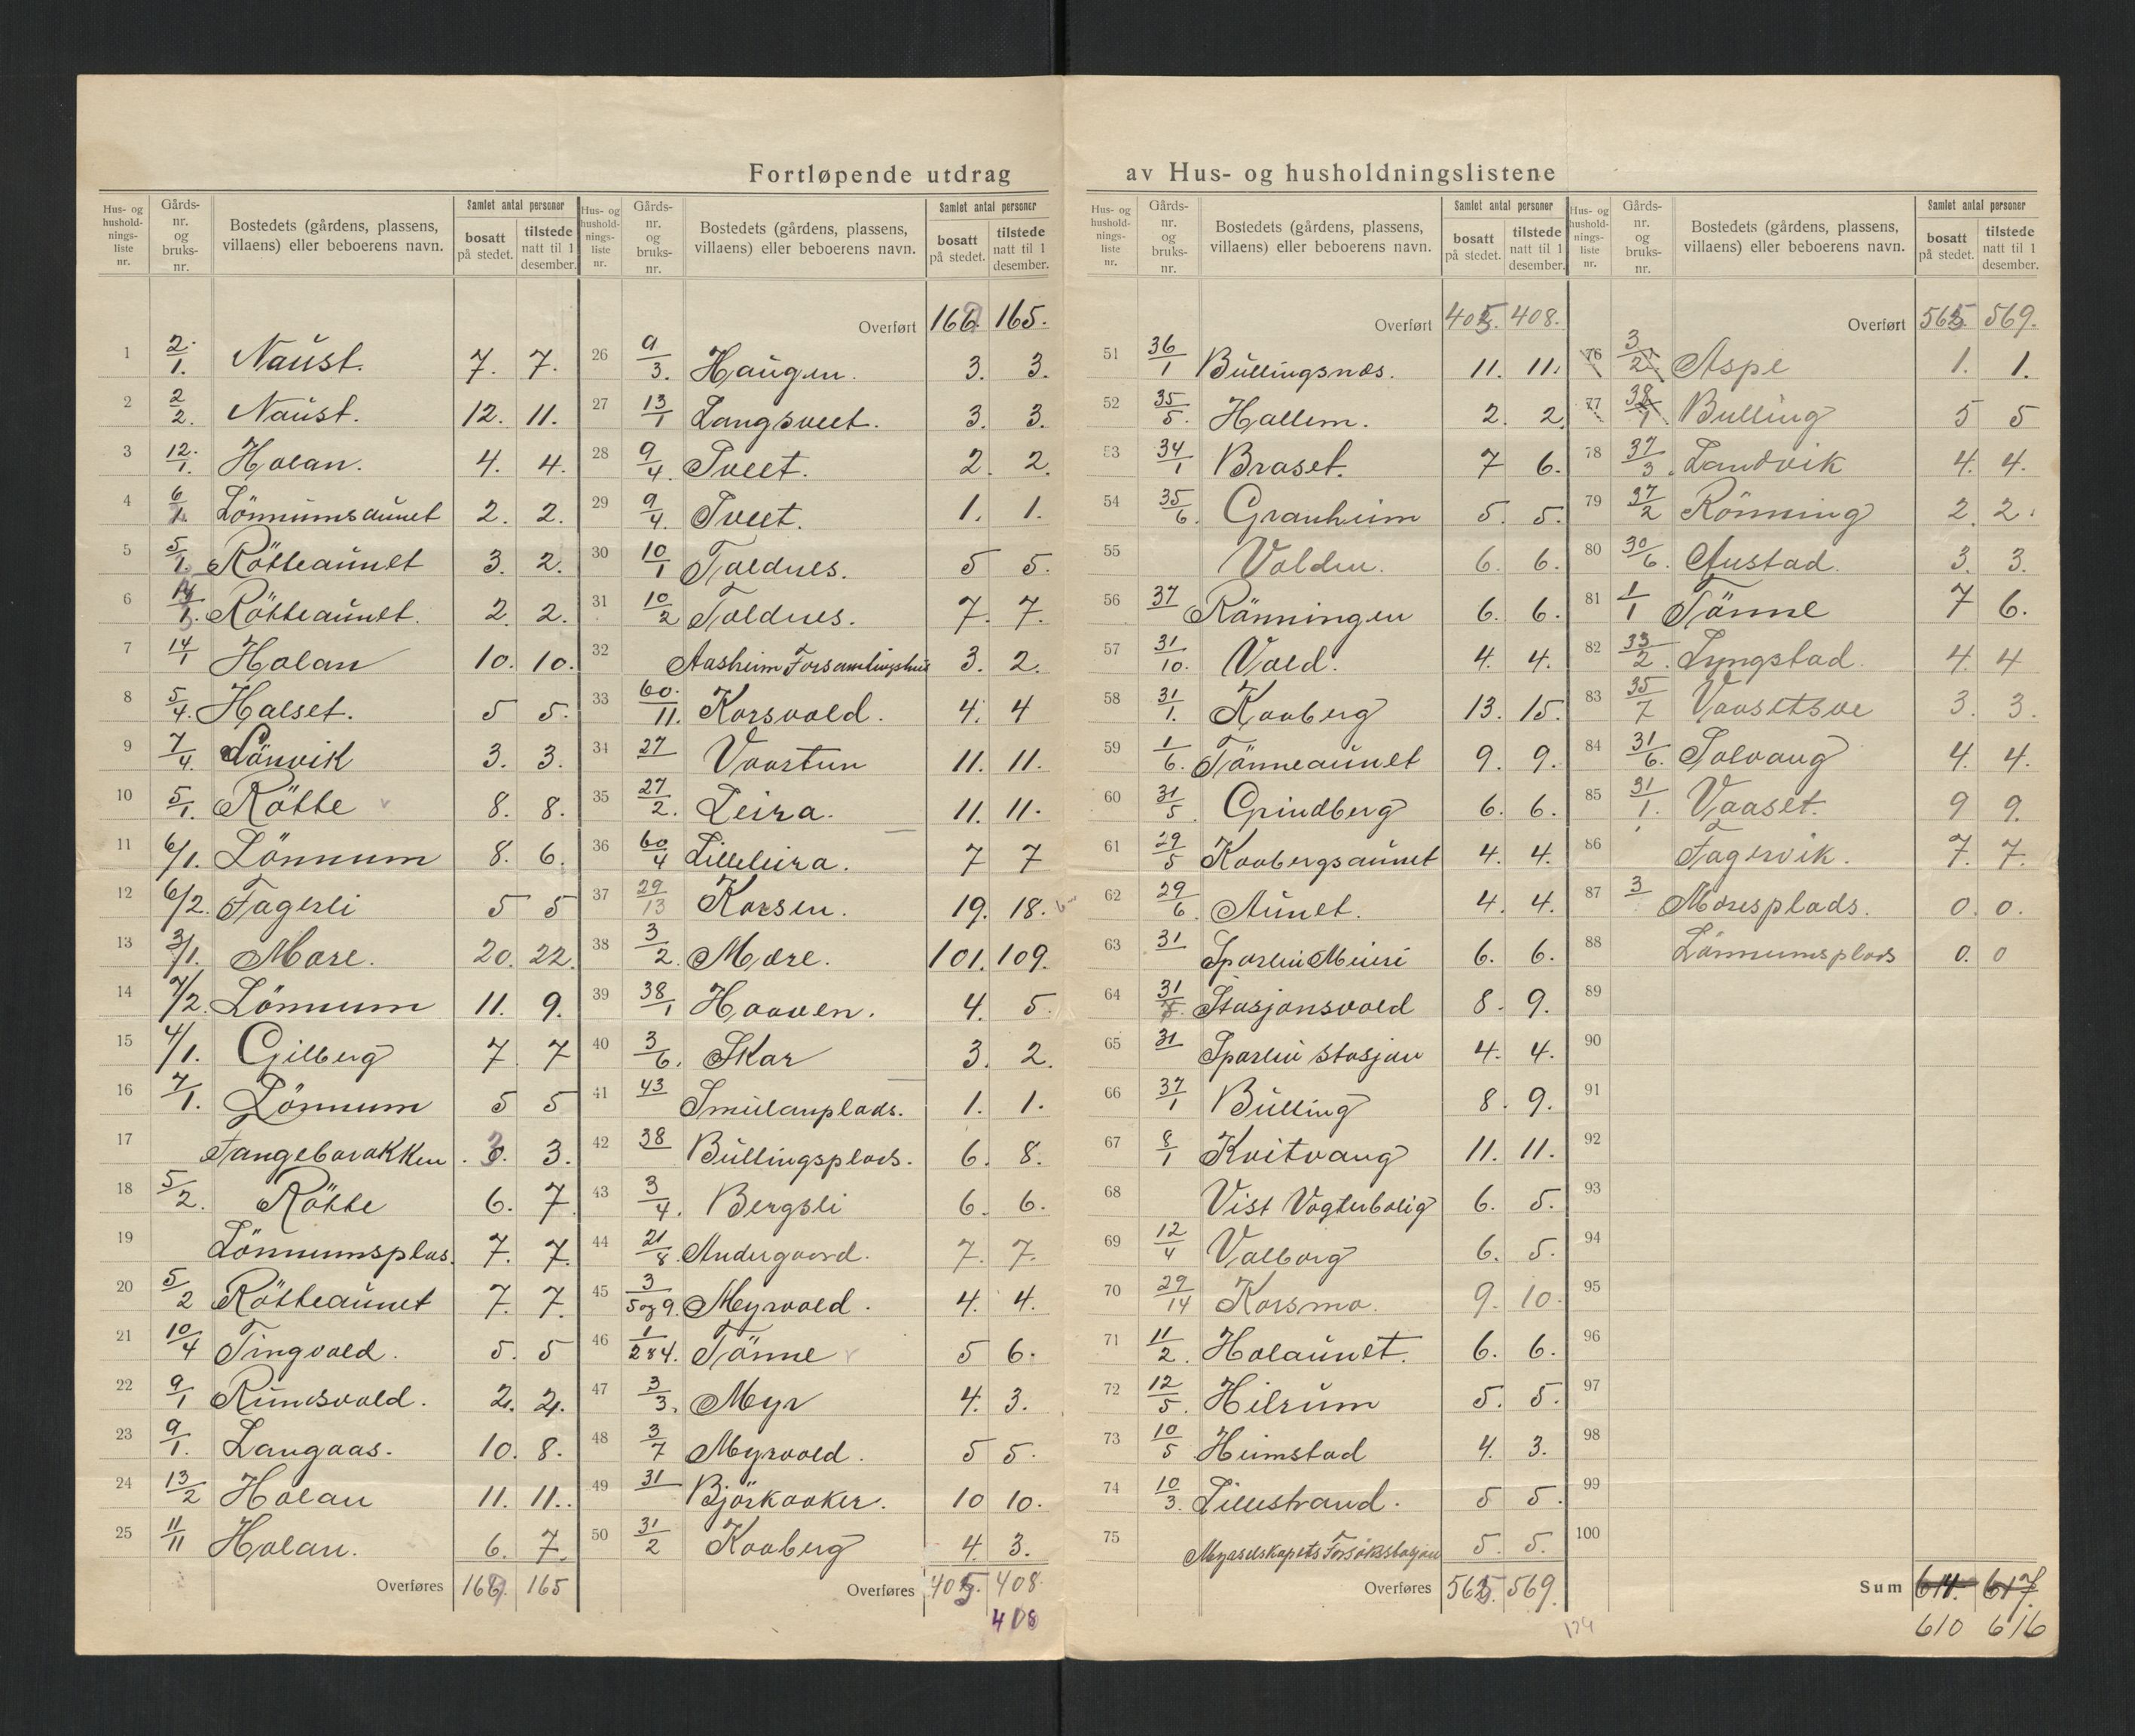 Fortløpende utdrag av Hus- og husholdningslistene
Hus- og hushold-nings-liste nr. Gårds-nr. og bruks-nr. Bostedets (gårdens, plassens, villaens) eller beboerens navn. Samlet antal personer bosatt på stedet. tilstede natt til 1 desember.
1 2/1. Naust. 7. 7.
2 2/2. Naust. 12. 11.
3 12/1. Holan. 4. 4.
4 6/1. Lönnumsaunet 2. 2.
5 5/1. Rötteaunet 3. 2.
6 Rötteaunet. 2. 2.
7 14/1 Holan 10. 10.
8 5/4. Halset. 5 5.
9 7/4. Lönvik 3. 3.
10 5/1. Rötte 8. 8.
11 6/1. Lönnum 8. 6.
12 6/2. Fagerli 5 5
13 3/1. Mære. 20. 22.
14 7/2. Lönnum 11. 9.
15 4/1. Gilberg 7. 7
16 7/1. Lönnum 5 5
17 Fangebarakken 3. 3.
18 5/2. Rötte 6. 7.
19 Lönnumsplas. 7. 7.
20 5/2 Rötteaunet 7. 7.
21 10/4 Tingvold. 5. 5
22 9/1 Runesvold. 2. 2.
23 9/1. Langaas. 10. 8.
24 13/2 Holan 11. 11.
25 11/11 Holan. 6. 7.
Overføres 166. 165
Hus- og hushold-nings-liste nr. Gårds-nr. og bruks-nr. Bostedets (gårdens, plassens, villaens) eller beboerens navn. Samlet antal personer bosatt på stedet. tilstede natt til 1 desember.
Overført 166. 165.
26 9/3. Haugen. 3. 3.
27 13/1 Langsveet. 3. 3.
28 9/4. Tveet. 2. 2.
29 9/4. Tveet. 1. 1.
30 10/1 Toldnes. 5 5.
31 10/2 Toldnes. 7. 7.
32 Aasheim Forsamlingshus 3. 2.
33 60/11. Korsvold. 4. 4
34 27 Vaartun 11. 11.
35 27/2. Leira. 11. 11.
36 60/4 Lilleleira. 7 7
37 29/13 Korsen. 19. 18.
38 3/2. Mære. 101. 109.
39 38/1 Haaven. 4. 5.
40 3/6. Skar 3. 2.
41 43 Smulanplads. 1. 1.
42 38 Bullingsplads. 6. 8.
43 3/4. Bergsli 6. 6.
44 21/8. Andergaard. 7. 7.
45 3/5og9. Myrvold. 4. 4.
46 1/2&4. Tönne 5 6.
47 3/3. Myr 4. 3.
48 3/7 Myrvold. 5 5.
49 31 Björkaaker. 10 10.
50 31/2 Kaaberg 4. 3.
Overføres 405. 408.
408
Hus- og hushold-nings-liste nr. Gårds-nr. og bruks-nr. Bostedets (gårdens, plassens, villaens) eller beboerens navn. Samlet antal personer bosatt på stedet. tilstede natt til 1 desember.
Overført 405. 408.
51 36/1 Bullingsnes. 11. 11.
52 35/5. Hallem. 2. 2.
53 34/1 Braset. 7 6.
54 35/6. Granheim 5. 5.
55 Volden. 6. 6.
56 37 Rönningen 6. 6.
57 31/10. Vold. 4. 4.
58 31/1. Kaaberg 13. 15.
59 1/6. Tönneaunet 9. 9.
60 31/5. Grindberg 6. 6.
61 29/5 Kaabergsaunet 4. 4.
62 29/6. Aunet. 4. 4.
63 31 Sparbu Meieri 6. 6.
64 31/7. Stasjonsvold 8. 9.
65 31 Sparbu stasjon 4. 4.
66 37/1 Bulling 8. 9.
67 8/1 Kvitvang 11. 11.
68 Vist Vogterbolig 6. 5.
69 12/4 Valborg 6. 5.
70 29/14 Korsmo. 9. 10.
71 11/2. Holaunet. 6. 6.
72 12/5. Hilrum 5. 5.
73 10/5 Heimstad 4. 3.
74 10/3. Lillestrand. 5 5.
75 Myrselskapets Forsöksstasjon 5. 5.
Overføres 565. 569.
Hus- og hushold-nings-liste nr. Gårds-nr. og bruks-nr. Bostedets (gårdens, plassens, villaens) eller beboerens navn. Samlet antal personer bosatt på stedet. tilstede natt til 1 desember.
Overført 565. 569.
76 3/2 Aspe 1. 1.
77 38/1 Bulling 5 5
78 37/3. Landvik 4. 4.
79 37/2 Rönning 2. 2.
80 30/6. Austad. 3. 3.
81 1/1 Tönne 7 6.
82 33/2. Lyngstad. 4. 4
83 35/7 Vaasetsve 3. 3.
84 31/6. Solvang 4. 4.
85 31/1. Vaaset. 9 9.
86 Fagervik. 7. 7.
87 3 Moresplads. 0. 0.
88 Lönnumsplads 0. 0
89
90
91
92
93
94
95
96
97
98
99
100
Sum 611. 617.
610 616
129